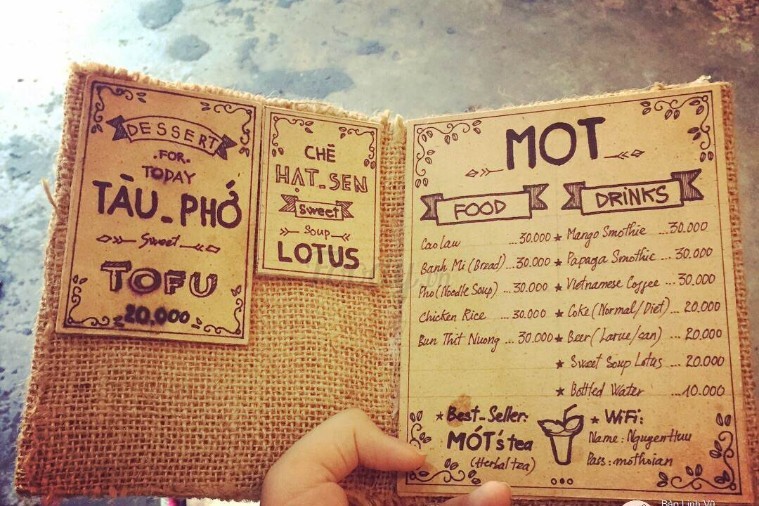 DESSERT
.FOR.
TODAY
TÀU_PHỚ
Sweet
TOFU
20,000
CHÈ
HẠT_SEN
Sweet
Soup
LOTUS
MOT
FOOD
DRINKS
Cao Lau ...30.000
Banh Mi (Bread)...30.000
Pho (Noodle Soup)...30.000
Chicken Rice ...30.000
Bun Thit Nuong ...30.000
★ Mango Smothie ...30.000
★ Papaga Smothie ...30.000
★ Vietnamese Coffee ...30.000
★ Coke (Normal/Diet)...20.000
★ Beer (Larue/can)...20.000
★ Sweet Soup Lotus ...20.000
★ Bottled Water ...10.000
★ Best_Seller:
MÓT's tea
(Herbal tea)
★ WiFi:
Name: NguyenHuu
Pass: mothoian
Bản Linh Vũ